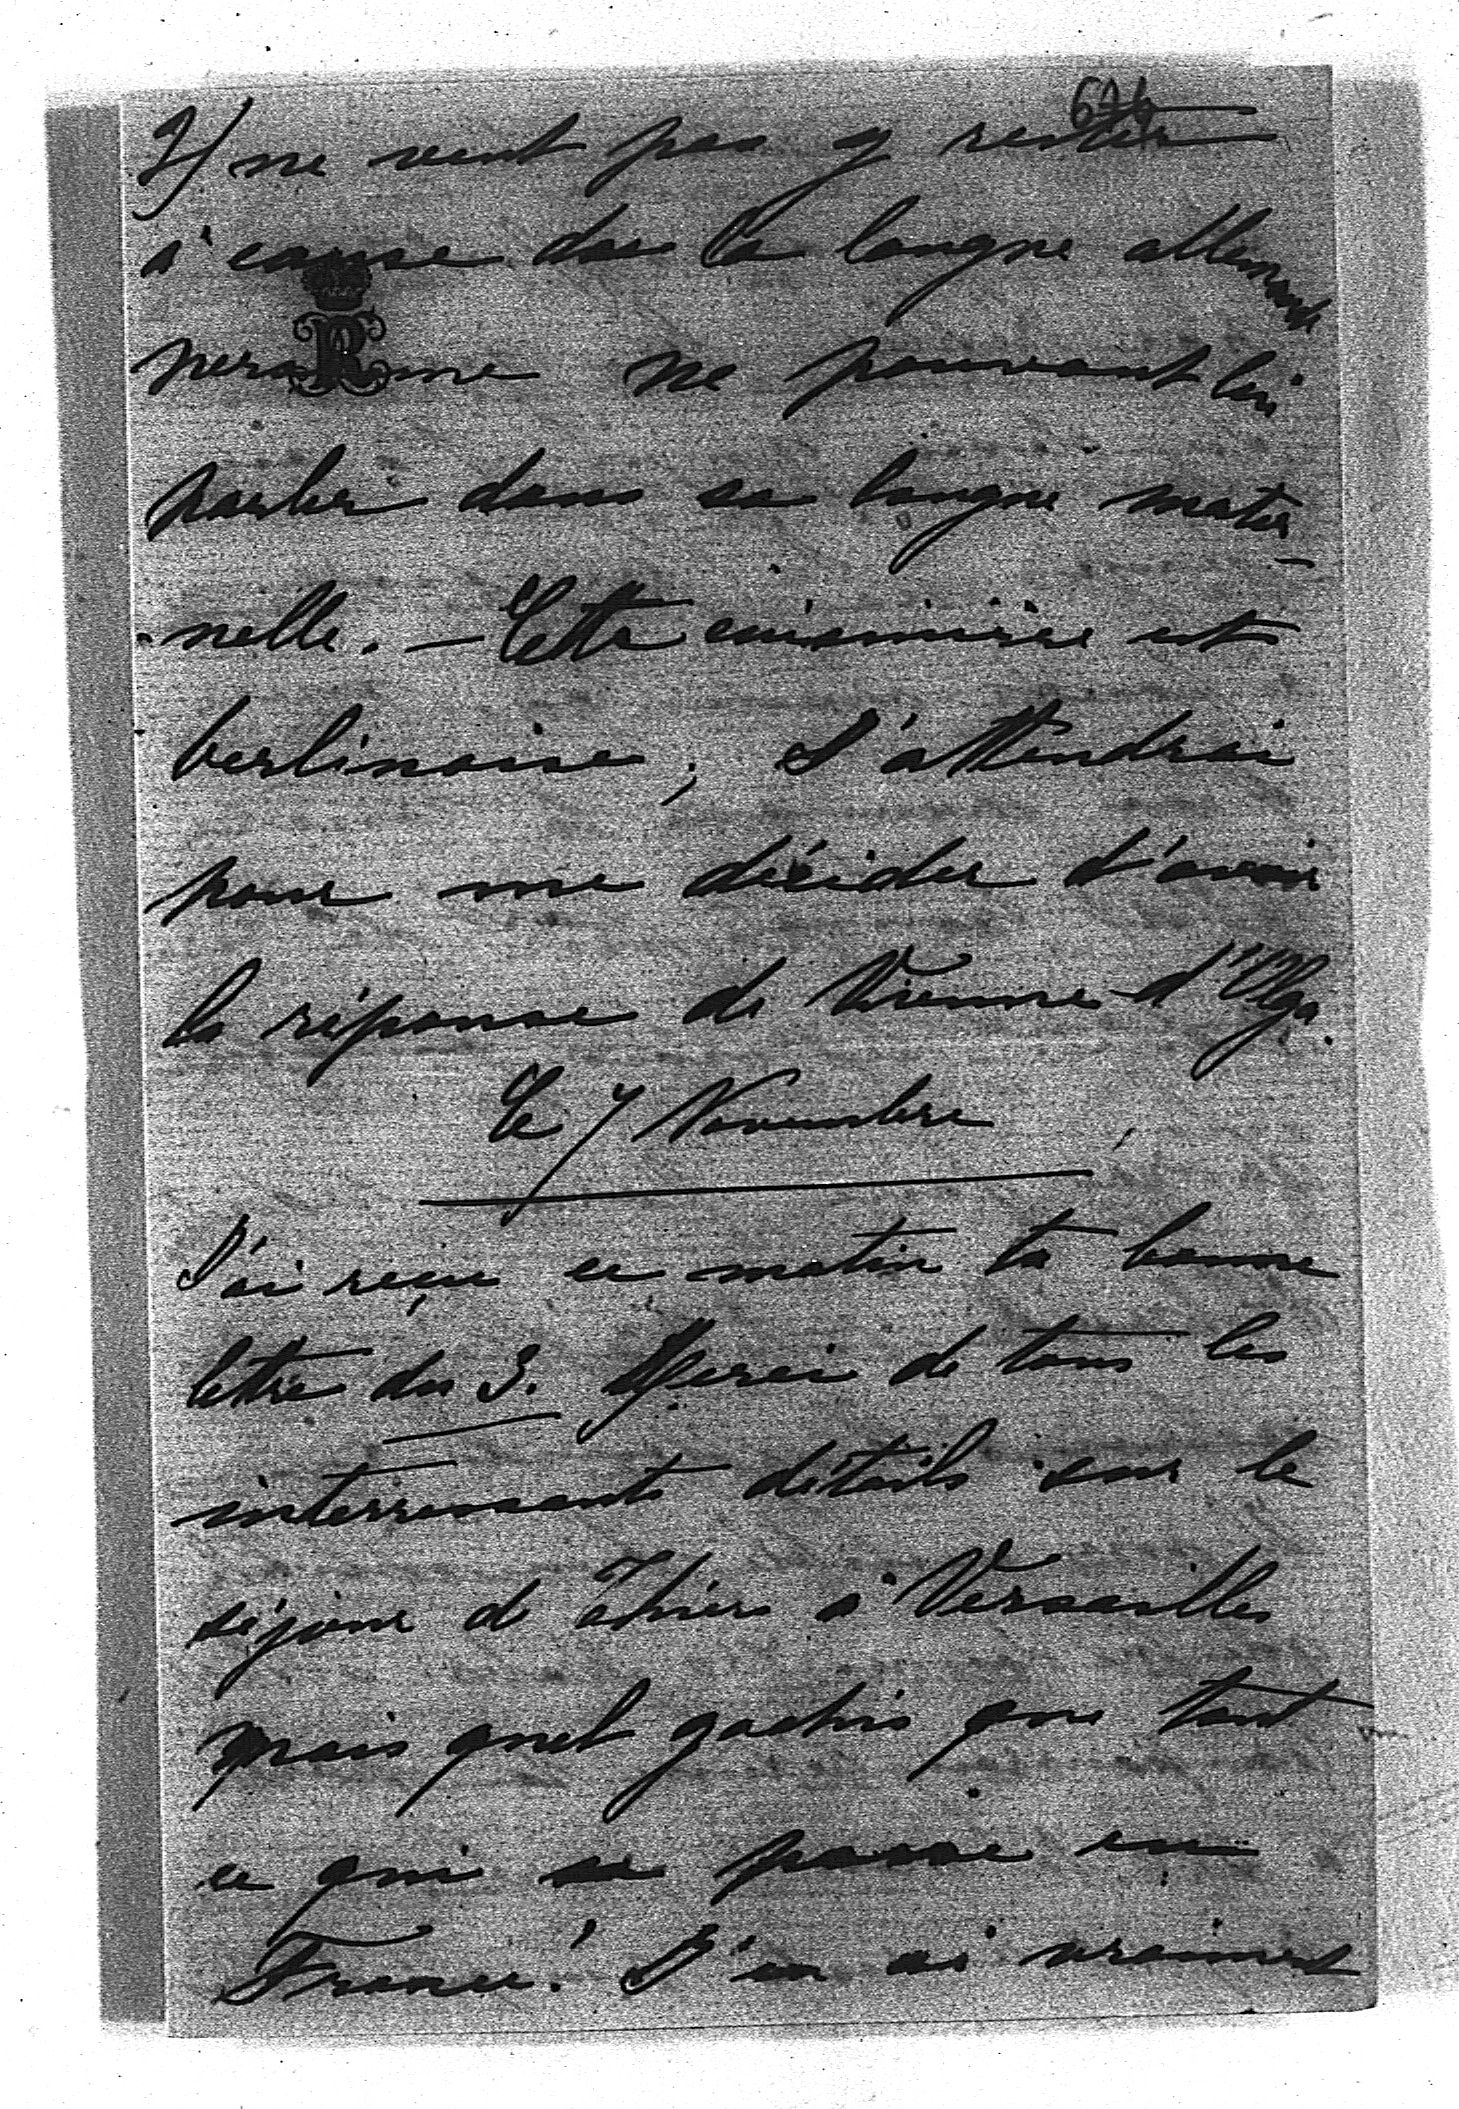 2) ne veut pas y rester
à cause de la langue allemande
personne ne pouvant lui
parler dans sa langue mater-
-nelle. — Cette cuisinière est
berlinoise; J'attendrai
pour me décider d'avoir
la réponse de Vienne d'Olga.
Le 7 Novembre
J'ai reçu ce matin ta bonne
lettre du 3. Merci de tous les
interressants détails sur le
séjour de Thiers à Versailles
mais quel gachis que tout
ce qui se passe en
France! J'en ai vraiment